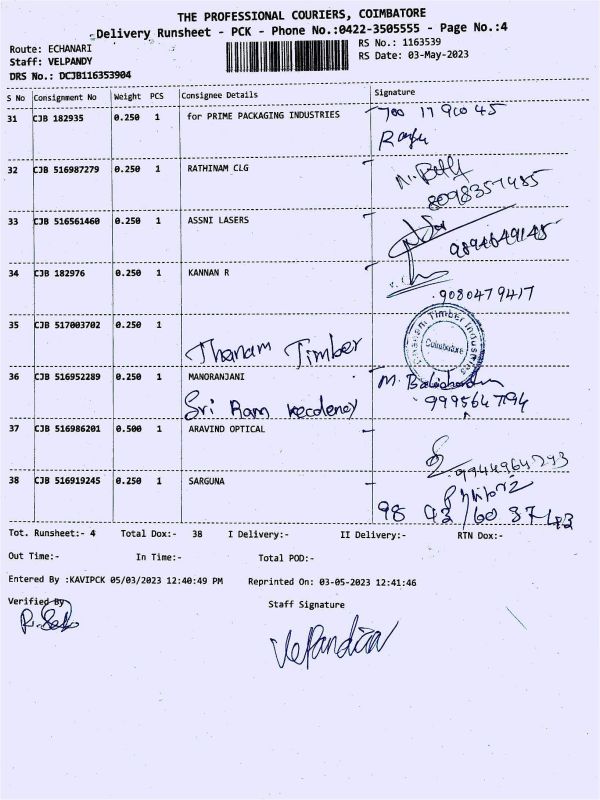 THE PROFESSIONAL COURIERS, COIMBATORE
Delivery Runsheet - PCK - Phone No.:0422-3505555 - Page No.:4
Route: ECHANARI
RS No.: 1163539
Staff: VELPANDY
RS Date: 03-May-2023
DRS No.: DCJB116353904
S No Consignment No Weight PCS Consignee Details Signature
31 CJB 182935 0.250 1 for PRIME PACKAGING INDUSTRIES
32 CJB 516987279 0.250 1 RATHINAM CLG
8098357485
33 CJB 516561460 0.250 1 ASSNI LASERS
34 CJB 182976 0.250 1 KANNAN R
9080479417
35 CJB 517003702 0.250 1
Thanam Timber
Timber Industries
Coimbatore
36 CJB 516952289 0.250 1 MANORANJANI
Sri Ram
37 CJB 516986201 0.500 1 ARAVIND OPTICAL
38 CJB 516919245 0.250 1 SARGUNA
Tot. Runsheet:- 4 Total Dox:- 38 I Delivery:- II Delivery:- RTN Dox:-
Out Time:- In Time:- Total POD:-
Entered By :KAVIPCK 05/03/2023 12:40:49 PM Reprinted On: 03-05-2023 12:41:46
Verified By Staff Signature
VelPandian